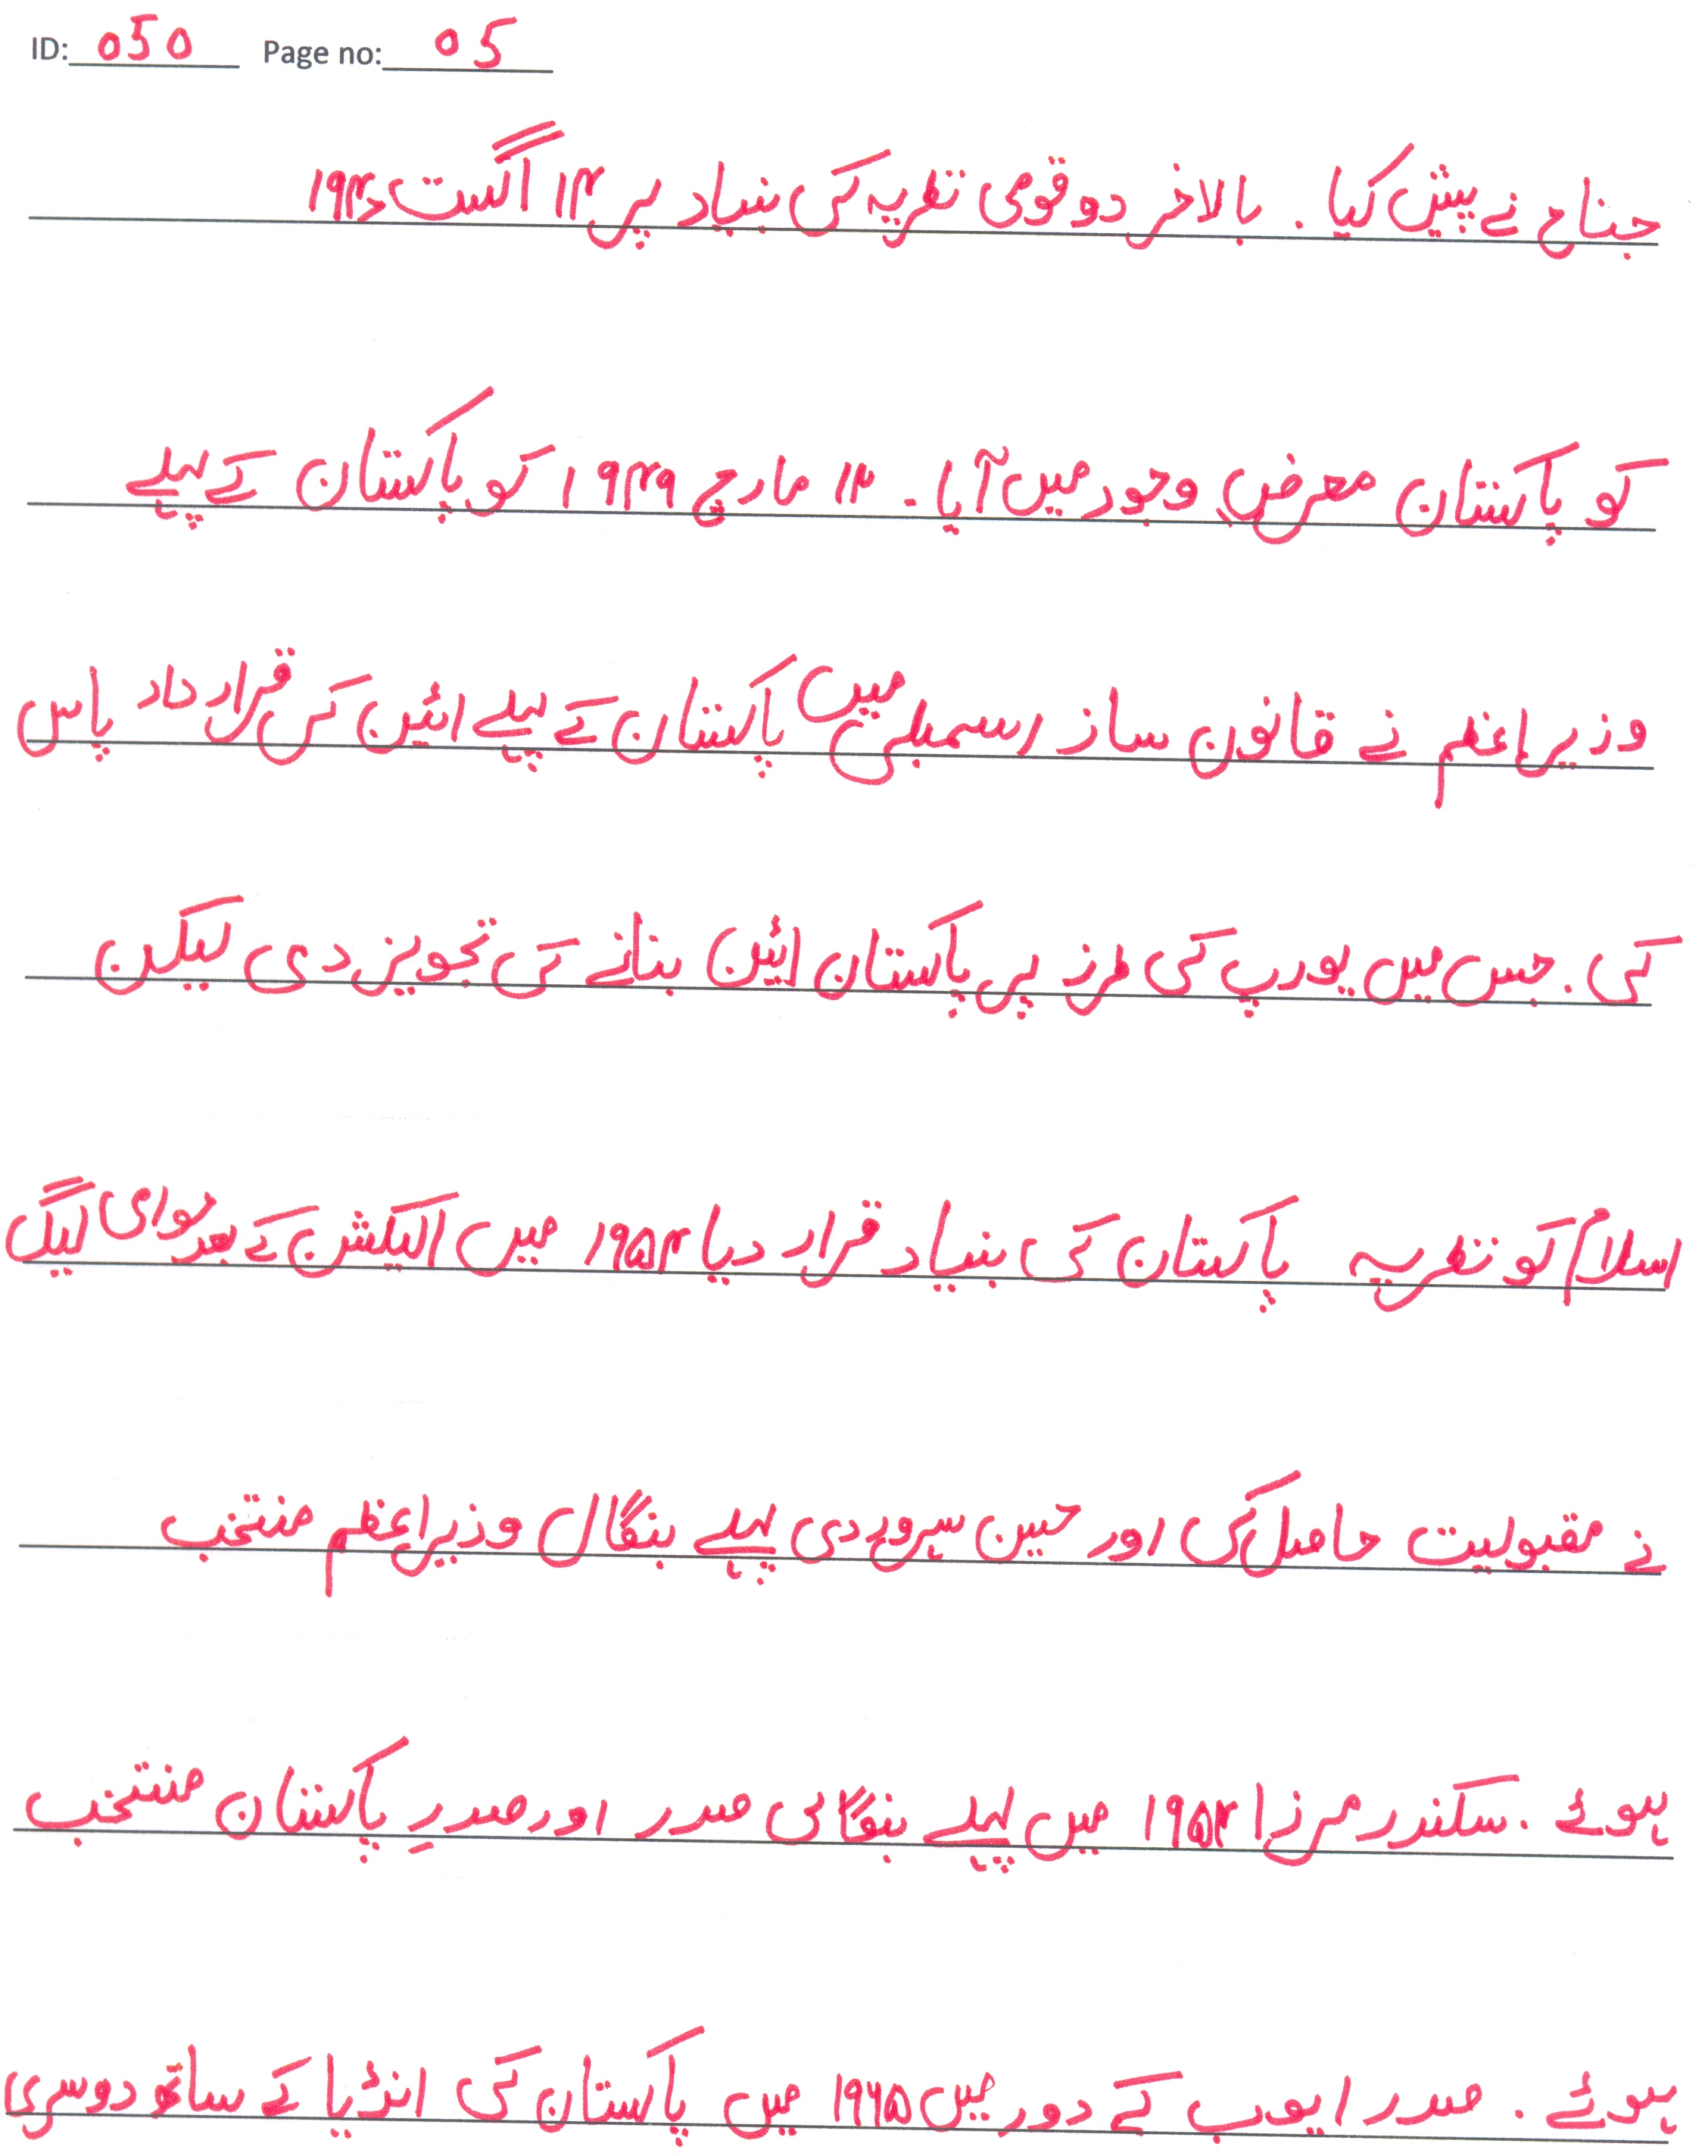 ID: 050 Page no: 05
جناح نے پیش کیا . بالاخر دو قومی نظریہ کی بنیاد پر ۱۴ اگست ۱۹۴۷
کو پاکستان معرضِ وجود میں آیا - ۱۲ مارچ ۱۹۴۹ کو پاکستان کے پہلے
وزیراعظم نے قانون ساز اسمبلی میں پاکستان کے پہلے ائین کی قرار داد پاس
کی . جس میں یورپ کی طرز پر پاکستان ائین بنانے کی تجویز دی لیکن
اسلام کو نظریہ پاکستان کی بنیاد قرار دیا ۱۹۵۴ میں الیکشن کے بعد عوامی لیگ
نے مقبولیت حاصل کی اور حسین سہروردی پہلے بنگال وزیراعظم منتخب
ہوئے . سکندر مرزا ۱۹۵۴ میں پہلے بنگالی صدر اور صدرِ پاکستان منتخب
ہوئے . صدر ایوب کے دور میں ۱۹۶۵ میں پاکستان کی انڈیا کے ساتھ دوسری